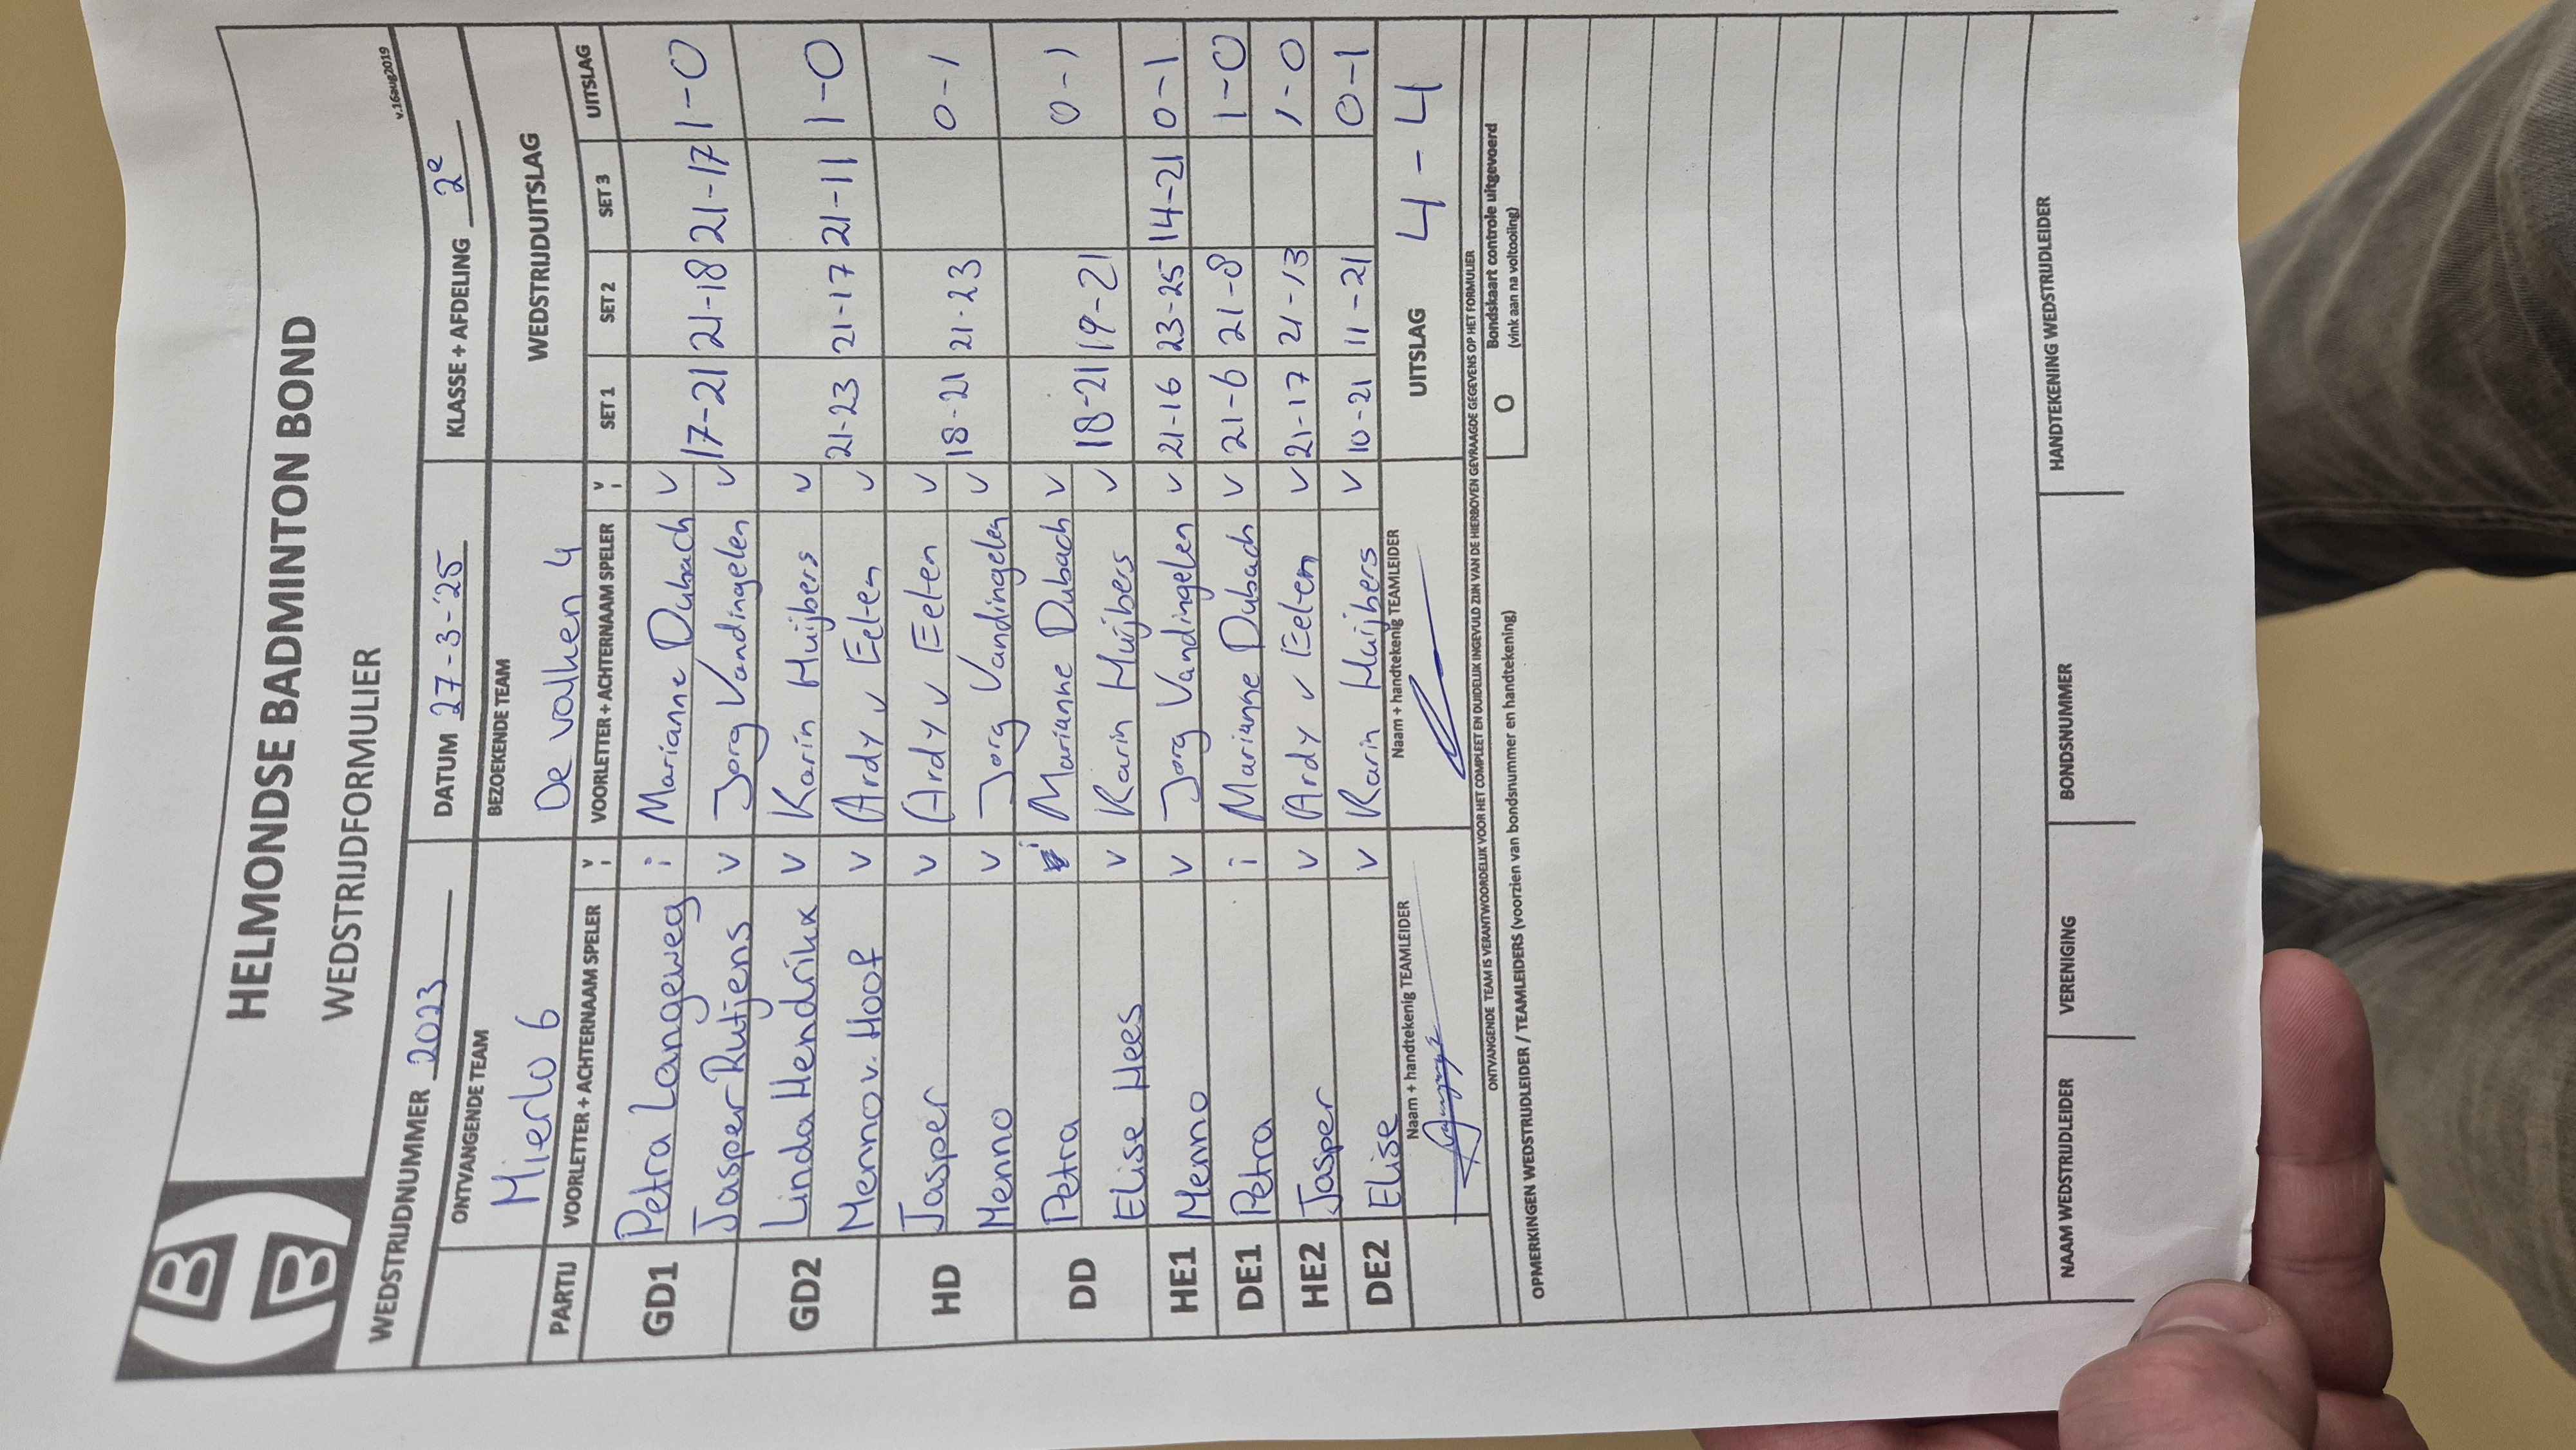 HELMONDSE BADMINTON BOND
WEDSTRIJDFORMULIER
v.16aug2019
WEDSTRIJDNUMMER 2023 DATUM 27-3-'25 KLASSE + AFDELING 2e
ONTVANGENDE TEAM BEZOEKENDE TEAM WEDSTRIJDUITSLAG
Mierlo 6 De Valken 4
PARTIJ VOORLETTER + ACHTERNAAM SPELER v i VOORLETTER + ACHTERNAAM SPELER v i SET 1 SET 2 SET 3 UITSLAG
GD1 Petra Langeweg i Marianne Dubach v
Jasper Rutjens v Jorg Vandingelen v 17-21 21-18 21-17 1-0
GD2 Linda Hendrikx v Karin Huijbers v
Menno v. Hoof v Ardy v Eelten v 21-23 21-17 21-11 1-0
HD Jasper v Ardy v Eelten v
Menno v Jorg Vandingelen v 18-21 21-23 0-1
DD Petra i Marianne Dubach v
Elise Hees v Karin Huijbers v 18-21 19-21 0-1
HE1 Menno v Jorg Vandingelen v 21-16 23-25 14-21 0-1
DE1 Petra i Marianne Dubach v 21-6 21-8 1-0
HE2 Jasper v Ardy v Eelten v 21-17 21-13 1-0
DE2 Elise v Karin Huijbers v 10-21 11-21 0-1
Naam + handtekenig TEAMLEIDER Naam + handtekenig TEAMLEIDER UITSLAG 4-4
ONTVANGENDE TEAM IS VERANTWOORDELIJK VOOR HET COMPLEET EN DUIDELIJK INGEVULD ZIJN VAN DE HIERBOVEN GEVRAAGDE GEGEVENS OP HET FORMULIER
OPMERKINGEN WEDSTRIJDLEIDER / TEAMLEIDERS (voorzien van bondsnummer en handtekening)
O Bondskaart controle uitgevoerd
(vink aan na voltooiing)
NAAM WEDSTRIJDLEIDER VERENIGING BONDSNUMMER HANDTEKENING WEDSTRIJDLEIDER